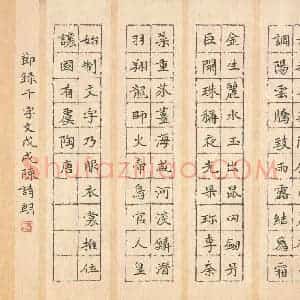 調陽雲騰致雨露結為霜
金生麗水玉出昆岡劍号
巨闕珠稱夜光果珍李柰
菜重芥薑海鹹河淡鱗潛
羽翔龍師火帝鳥官人皇
始制文字乃服衣裳推位
讓國有虞陶唐
節錄千字文戊戌陳詩